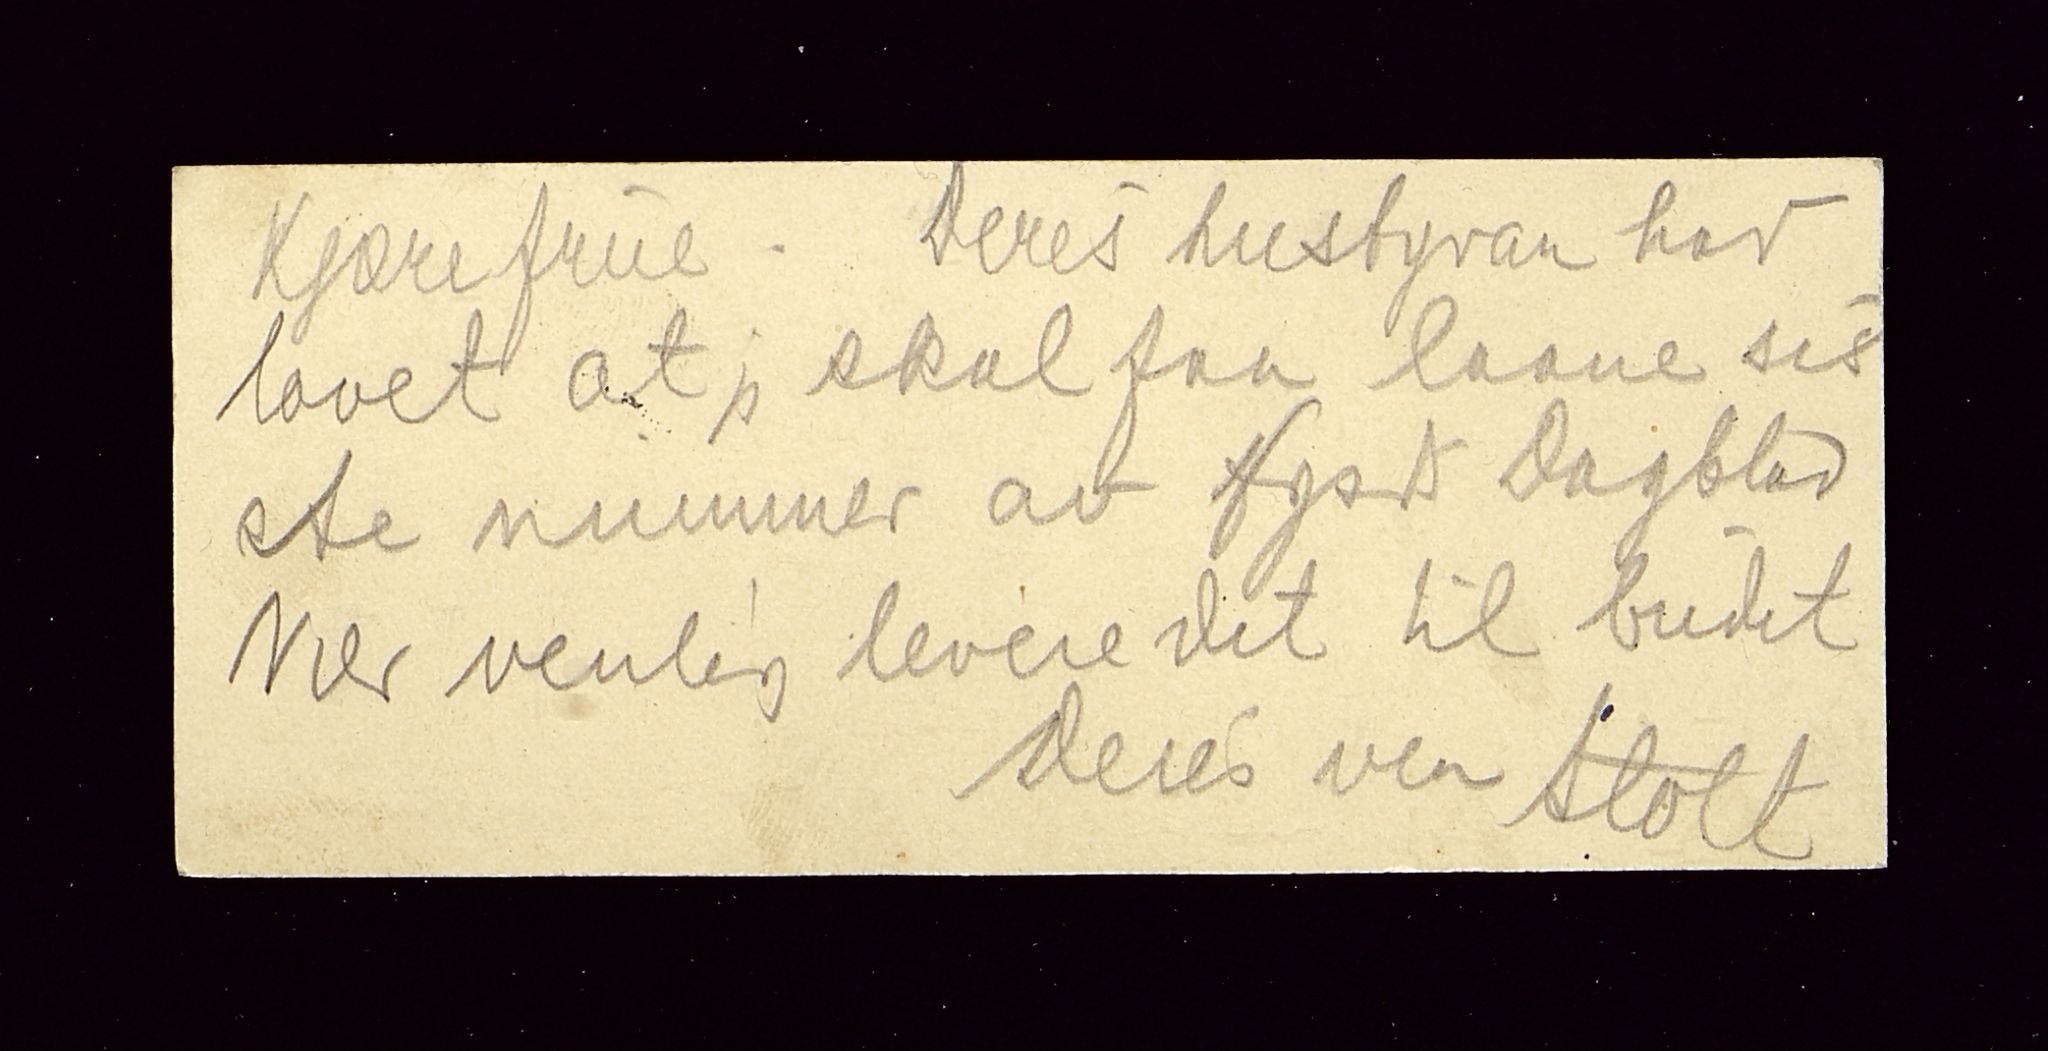 Kjære frue. Deres hustyran har
lovet at j skal faa laane sis
ste nummer av Tysk Dagblad
Vær venlig levere det til budet
Deres ven Stolt